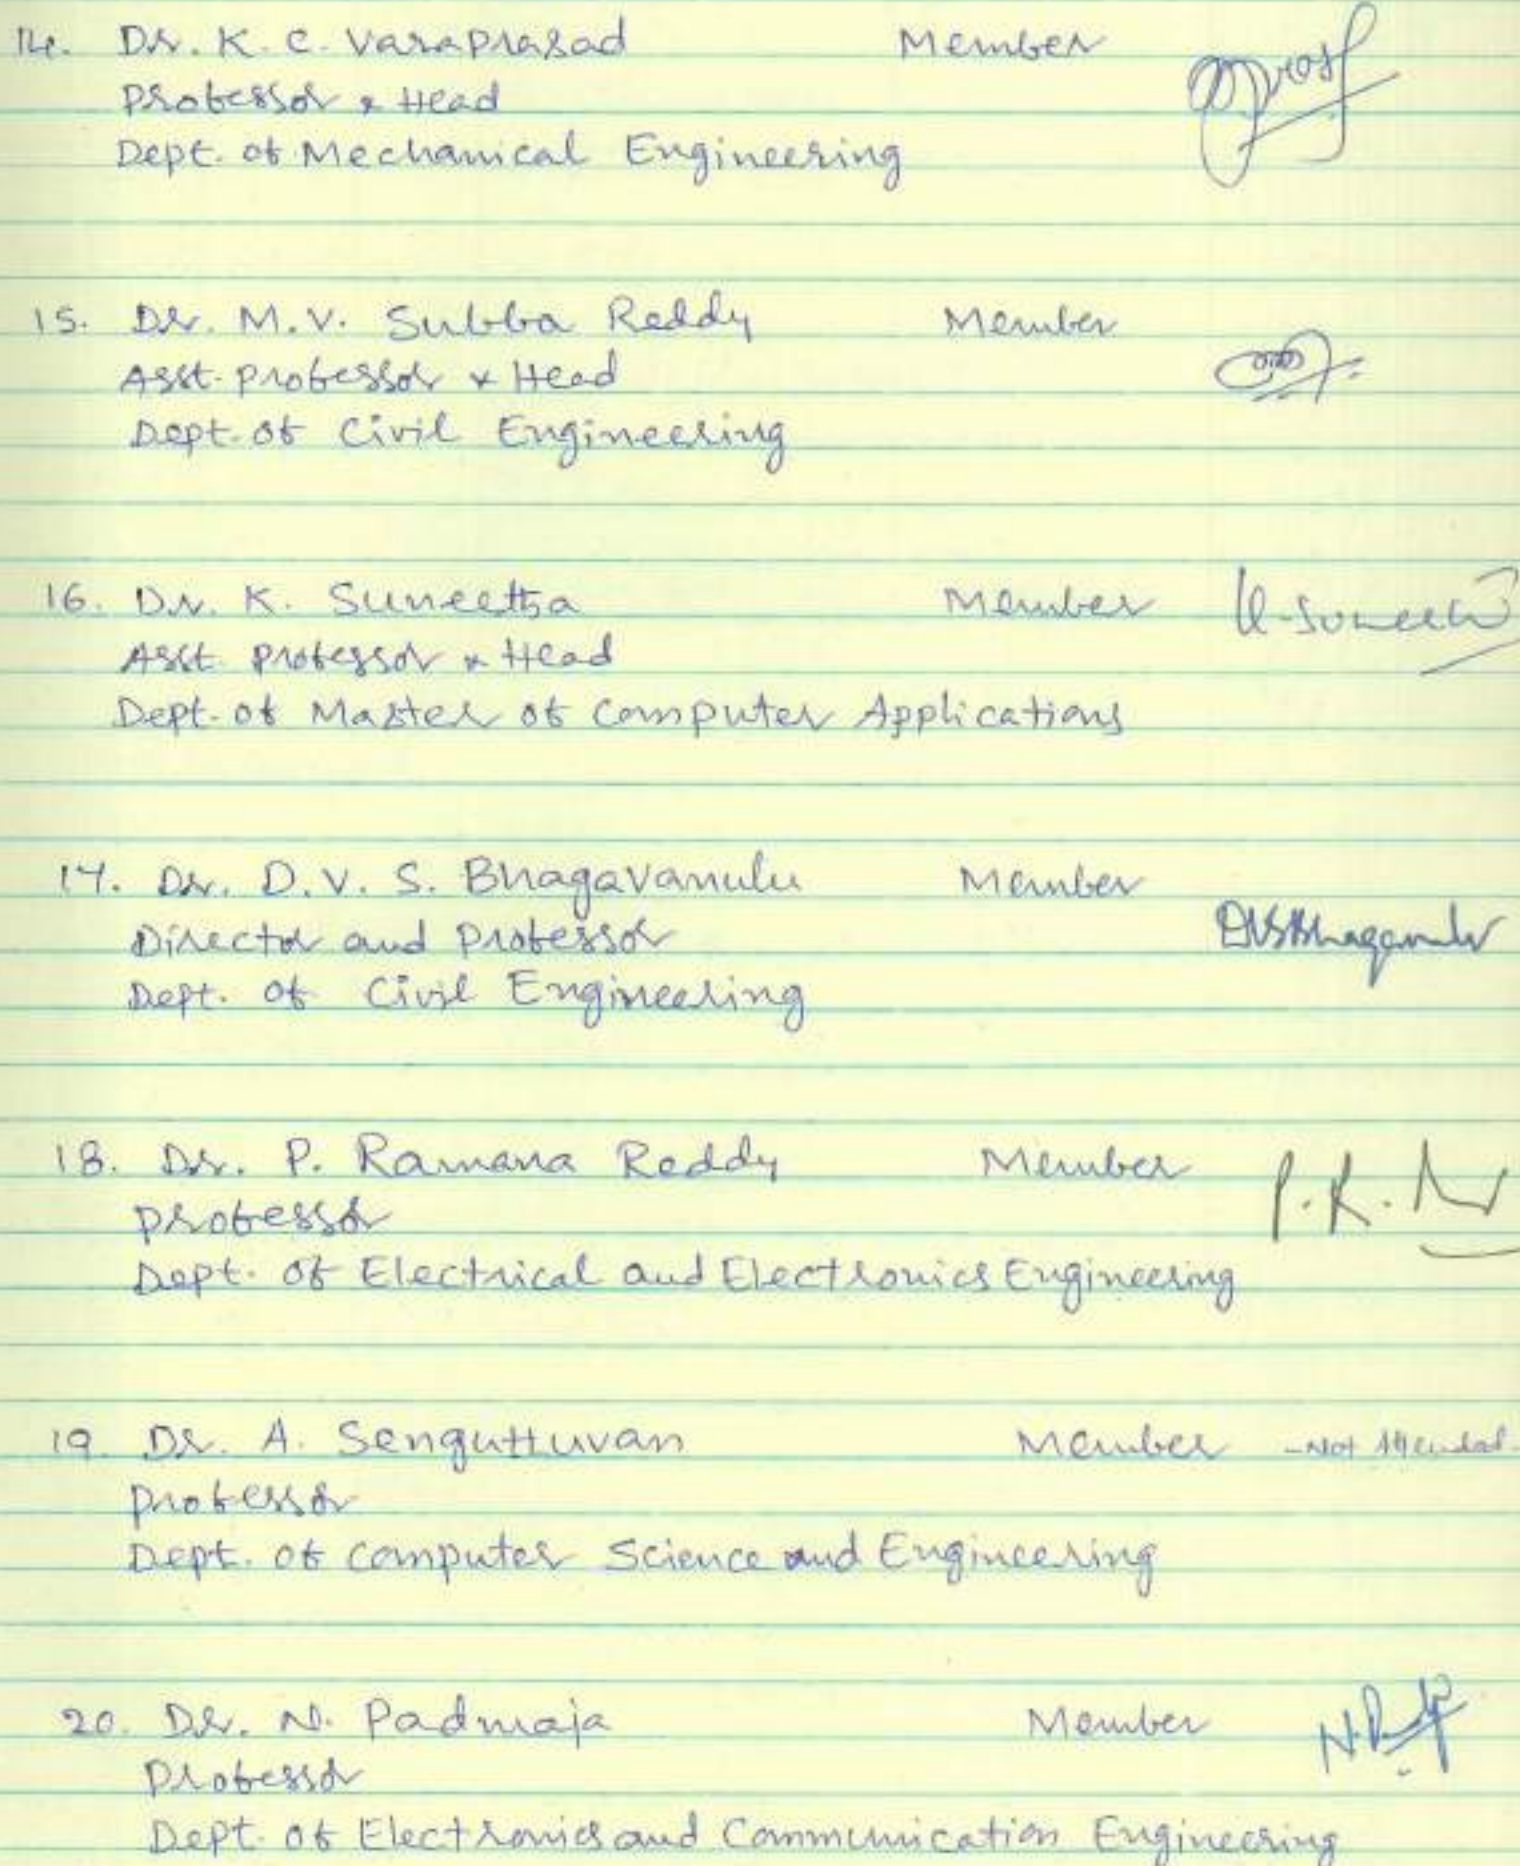 14. Dr. K. C. Varaprasad Member
Professor & Head
Dept. of Mechanical Engineering
15. Dr. M.V. Subba Reddy Member
Asst. Professor & Head
Dept. of Civil Engineering
16. Dr. K. Suneetha Member K. Suneetha
Asst. Professor & Head
Dept. of Master of Computer Applications
17. Dr. D.V. S. Bhagavanulu Member
Director and Professor DVSBhagavanulu
Dept. of Civil Engineering
18. Dr. P. Ramana Reddy Member P.R.
Professor
Dept. of Electrical and Electronics Engineering
19. Dr. A. Senguttuvan Member - Not Attended -
Professor
Dept. of Computer Science and Engineering
20. Dr. N. Padmaja Member
Professor
Dept. of Electronics and Communication Engineering